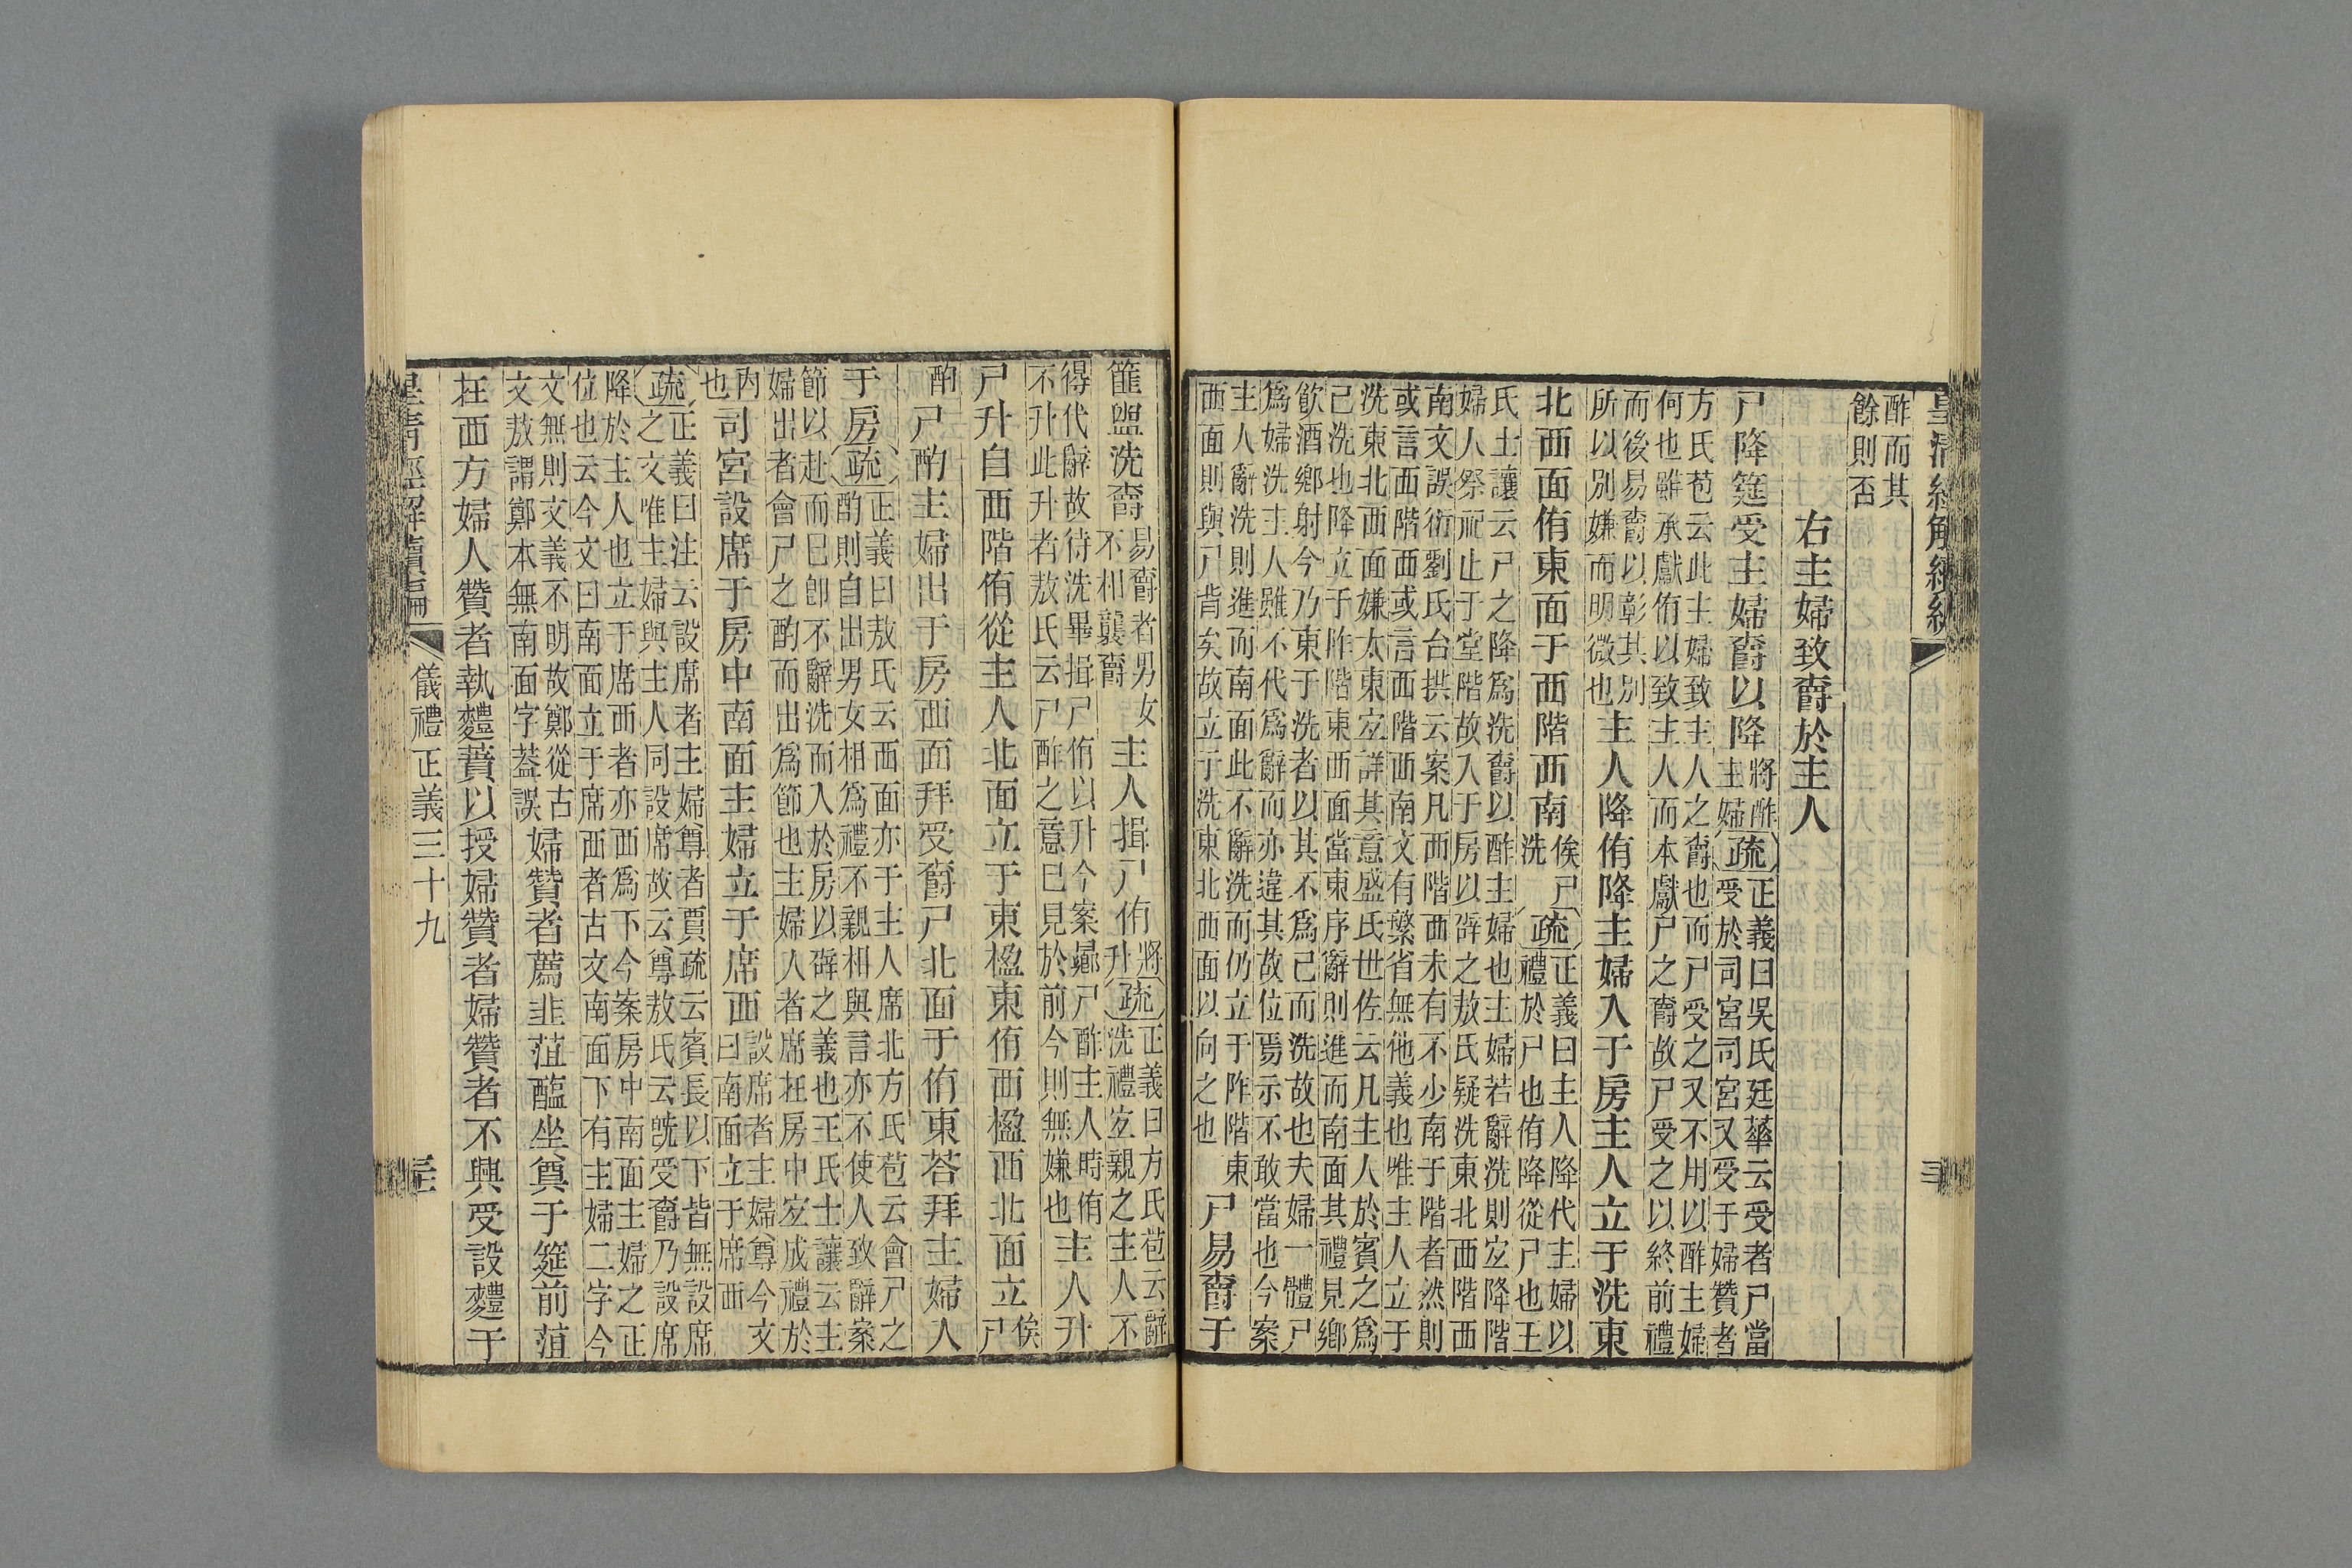 皇清經解續編
三
酢而其
餘則否
右主婦致爵於主人
尸降筵受主婦爵以降
將酢
主婦
疏
正義曰吳氏廷華云受者尸當
受於司宮司宮又受于婦贊者
方氏苞云此主婦致主人之爵也而尸受之又不用以酢主婦
何也雖承獻侑以致主人而本獻尸之爵故尸受之以終前禮
而後易爵以彰其別
所以別嫌而明微也
主人降侑降主婦入于房主人立于洗東
北西面侑東面于西階西南
俟尸
洗
疏
正義曰主人降代主婦以
禮於尸也侑降從尸也王
氏士讓云尸之降爲洗爵以酢主婦也主婦若辭洗則宐降階
婦人祭祀止于堂階故入于房以辟之敖氏疑洗東北西階西
南文誤衍劉氏台拱云案凡西階西未有不少南于階者然則
或言西階西或言西階西南文有蘩省無他義也唯主人立于
洗東北西面嫌太東宐詳其意盛氏世佐云凡主人於賓之爲
己洗也降立于阼階東西面當東序辭則進而南面其禮見鄉
飮酒鄉射今乃東于洗者以其不爲己而洗故也夫婦一體尸
爲婦洗主人雖不代爲辭而亦違其故位焉示不敢當也今案
主人辭洗則進而南面此不辭洗而仍立于阼階東
西面則與尸背矣故立于洗東北西面以向之也
尸易爵于
篚盥洗爵
易爵者男女
不相襲爵
主人揖尸侑
將
升
疏
正義曰方氏苞云辭
洗禮宐親之主人不
得代辭故待洗畢揖尸侑以升今案曏尸酢主人時侑
不升此升者敖氏云尸酢之意已見於前今則無嫌也
主人升
尸升自西階侑從主人北面立于東楹東侑西楹西北面立
俟
尸
酌
尸酌主婦出于房西面拜受爵尸北面于侑東荅拜主婦入
于房
疏
正義曰敖氏云西面亦于主人席北方氏苞云會尸之
酌則自出男女相爲禮不親相與言亦不使人致辭案
節以赴而已卽不辭洗而入於房以辟之義也王氏士讓云主
婦出者會尸之酌而出爲節也主婦人者席在房中宐成禮於
內
也
司宮設席于房中南面主婦立于席西
設席者主婦尊今文
曰南面立于席西
疏
正義曰注云設席者主婦尊者賈疏云賓長以下皆無設席
之文唯主婦與主人同設席故云尊敖氏云旣受爵乃設席
降於主人也立于席西者亦西爲下今案房中南面主婦之正
位也云今文曰南面立于席西者古文南面下有主婦二字今
文無則文義不明故鄭從古
文敖謂鄭本無南面字葢誤
婦贊者薦韭菹醢坐奠于筵前菹
在西方婦人贊者執麷蕡以授婦贊者婦贊者不興受設麷于
皇清經解續編
儀禮正義三十九